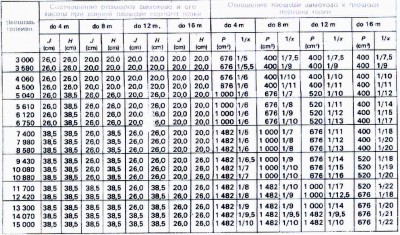 Соотношение размеров дымохода и его
Отношение площади дымохода к площади
do 4 m do 8 m do 12 m, do 16 m do 4 m do 8 m do 12 m do 16 m
J H J H J H J H P 1/x P 1/x P 1/x P 1/x
(cm) (cm) (cm) (cm) (cm) (cm) (cm) (cm) (cm²) (cm²) (cm²) (cm²)
3 000 26,0 26,0 20,0 20,0 20,0 20,0 20,0 20,0 676 1/5 400 1/7,5 400 1/7,5 400 1/7,5
3 580 26,0 26,0 20,0 20,0 20,0 20,0 20,0 20,0 676 1/5,5 400 1/9 400 1/9 400 1/9
4 060 26,0 26,0 20,0 20,0 20,0 20,0 20,0 20,0 676 1/6 400 1/10 400 1/10 400 1/10
4 500 26,0 26,0 20,0 20,0 20,0 20,0 20,0 20,0 676 1/6 400 1/11 400 1/11 400 1/11
5 040 26,0 38,5 26,0 26,0 20,0 26,0 20,0 20,0 1 000 1/6 676 1/7 520 1/10 400 1/12
5 610 26,0 38,5 26,0 26,0 20,0 26,0 20,0 20,0 1 000 1/6 676 1/8 520 1/11 400 1/14
6 120 26,0 38,5 26,0 26,0 20,0 26,0 20,0 20,0 1 000 1/6 676 1/9 520 1/12 400 1/15
6 750 26,0 38,5 26,0 26,0 20,0 26,0 20,0 20,0 1 000 1/6 676 1/10 520 1/13 400 1/17
7 400 38,5 38,5 26,0 38,5 26,0 26,0 20,0 20,0 1 482 1/5 1 000 1/7 676 1/11 400 1/18
7 980 38,5 38,5 26,0 38,5 26,0 26,0 20,0 20,0 1 482 1/5 1 000 1/8 676 1/12 400 1/20
8 580 38,5 38,5 26,0 38,5 26,0 26,0 20,0 20,0 1 482 1/6 1 000 1/8 676 1/13 400 1/20
9 430 38,5 38,5 26,0 38,5 26,0 26,0 20,0 26,0 1 482 1/6,5 1 000 1/9 676 1/14 520 1/18
10 080 38,5 38,5 26,0 38,5 26,0 26,0 20,0 26,0 1 482 1/7 1 000 1/10 676 1/15 520 1/19
10 880 38,5 38,5 26,0 38,5 26,0 26,0 20,0 26,0 1 482 1/7 1 000 1/10 676 1/16 520 1/20
11 700 38,5 38,5 38,5 38,5 26,0 38,5 20,0 26,0 1 482 1/8 1 482 1/8 1 000 1/12 520 1/22
12 420 38,5 38,5 38,5 38,5 26,0 38,5 26,0 26,0 1 482 1/8 1 482 1/10 1 000 1/12,5 676 1/18
13 300 38,5 38,5 38,5 38,5 26,0 38,5 26,0 26,0 1 482 1/9 1 482 1/9 1 000 1/14 676 1/20
14 070 38,5 38,5 38,5 38,5 38,5 38,5 26,0 26,0 1 482 1/9,5 1 482 1/9,5 1 482 1/9,5 676 1/21
15 000 38,5 38,5 38,5 38,5 38,5 38,5 26,0 26,0 1 482 1/10 1 482 1/10 1 482 1/10 676 1/22